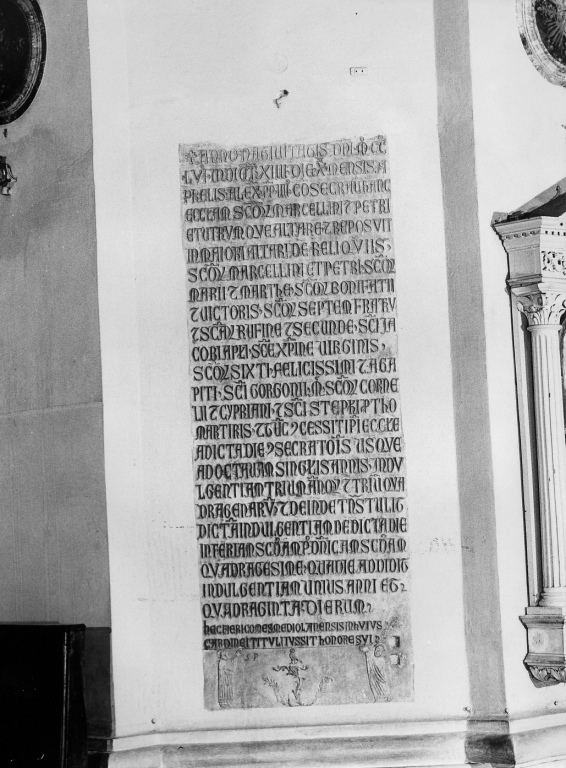 ANNO NATIVITATIS DNI M CC
LVI INDICT XIIII DIE X MENSIS A
PRELIS ALEX PP IIII COSECRAVIT HANC
ECCTAM SCOR MARCELLINI T PETRI
ET UTRUM QUE ALTARE T REPOSVIT
IN MAIORI ALTARI DE RELIQVIIS
SCOR MARCELLINI ET PETRI SCOR
MARII T MARTHE SCOR BONIFATII
T VICTORIS SCOR SEPTEM FRATRU
T SCAR RUFINE T SECUNDE SCI JA
COBI APLI SCE XPINE VIRGINIS
SCOR SIXTI FELICISSIMI T AGA
PITI SCI GORGONII M SCOR CORNE
LII T CYPRIANI T SCI STEPHI PTHO
MARTIRIS T HUIC 9CESSIT IPI ECCLE
A DICTA DIE 9SECRATOIS USQUE
AD OCTAVAM SINGLIS ANNIS INDU
LGENTIAM TRIUM ANNOR T TRIU QUA
DRAGENARU T DEINDE TNSTULIT
DICTA INDULGENTIAM DE DICTA DIE
IN FERIAM SCDAM P DNICAM SCDAM
QUADRAGESIME QUA DIE ADDIDIT
INDULGENTIAM UNIUS ANNI ET
QUADRAGINTA DIERUM
HEC HERICO MEA MEDIOLANENSIS HUIUS
CARDINEI TITULI IUSSIT HONORE SUI